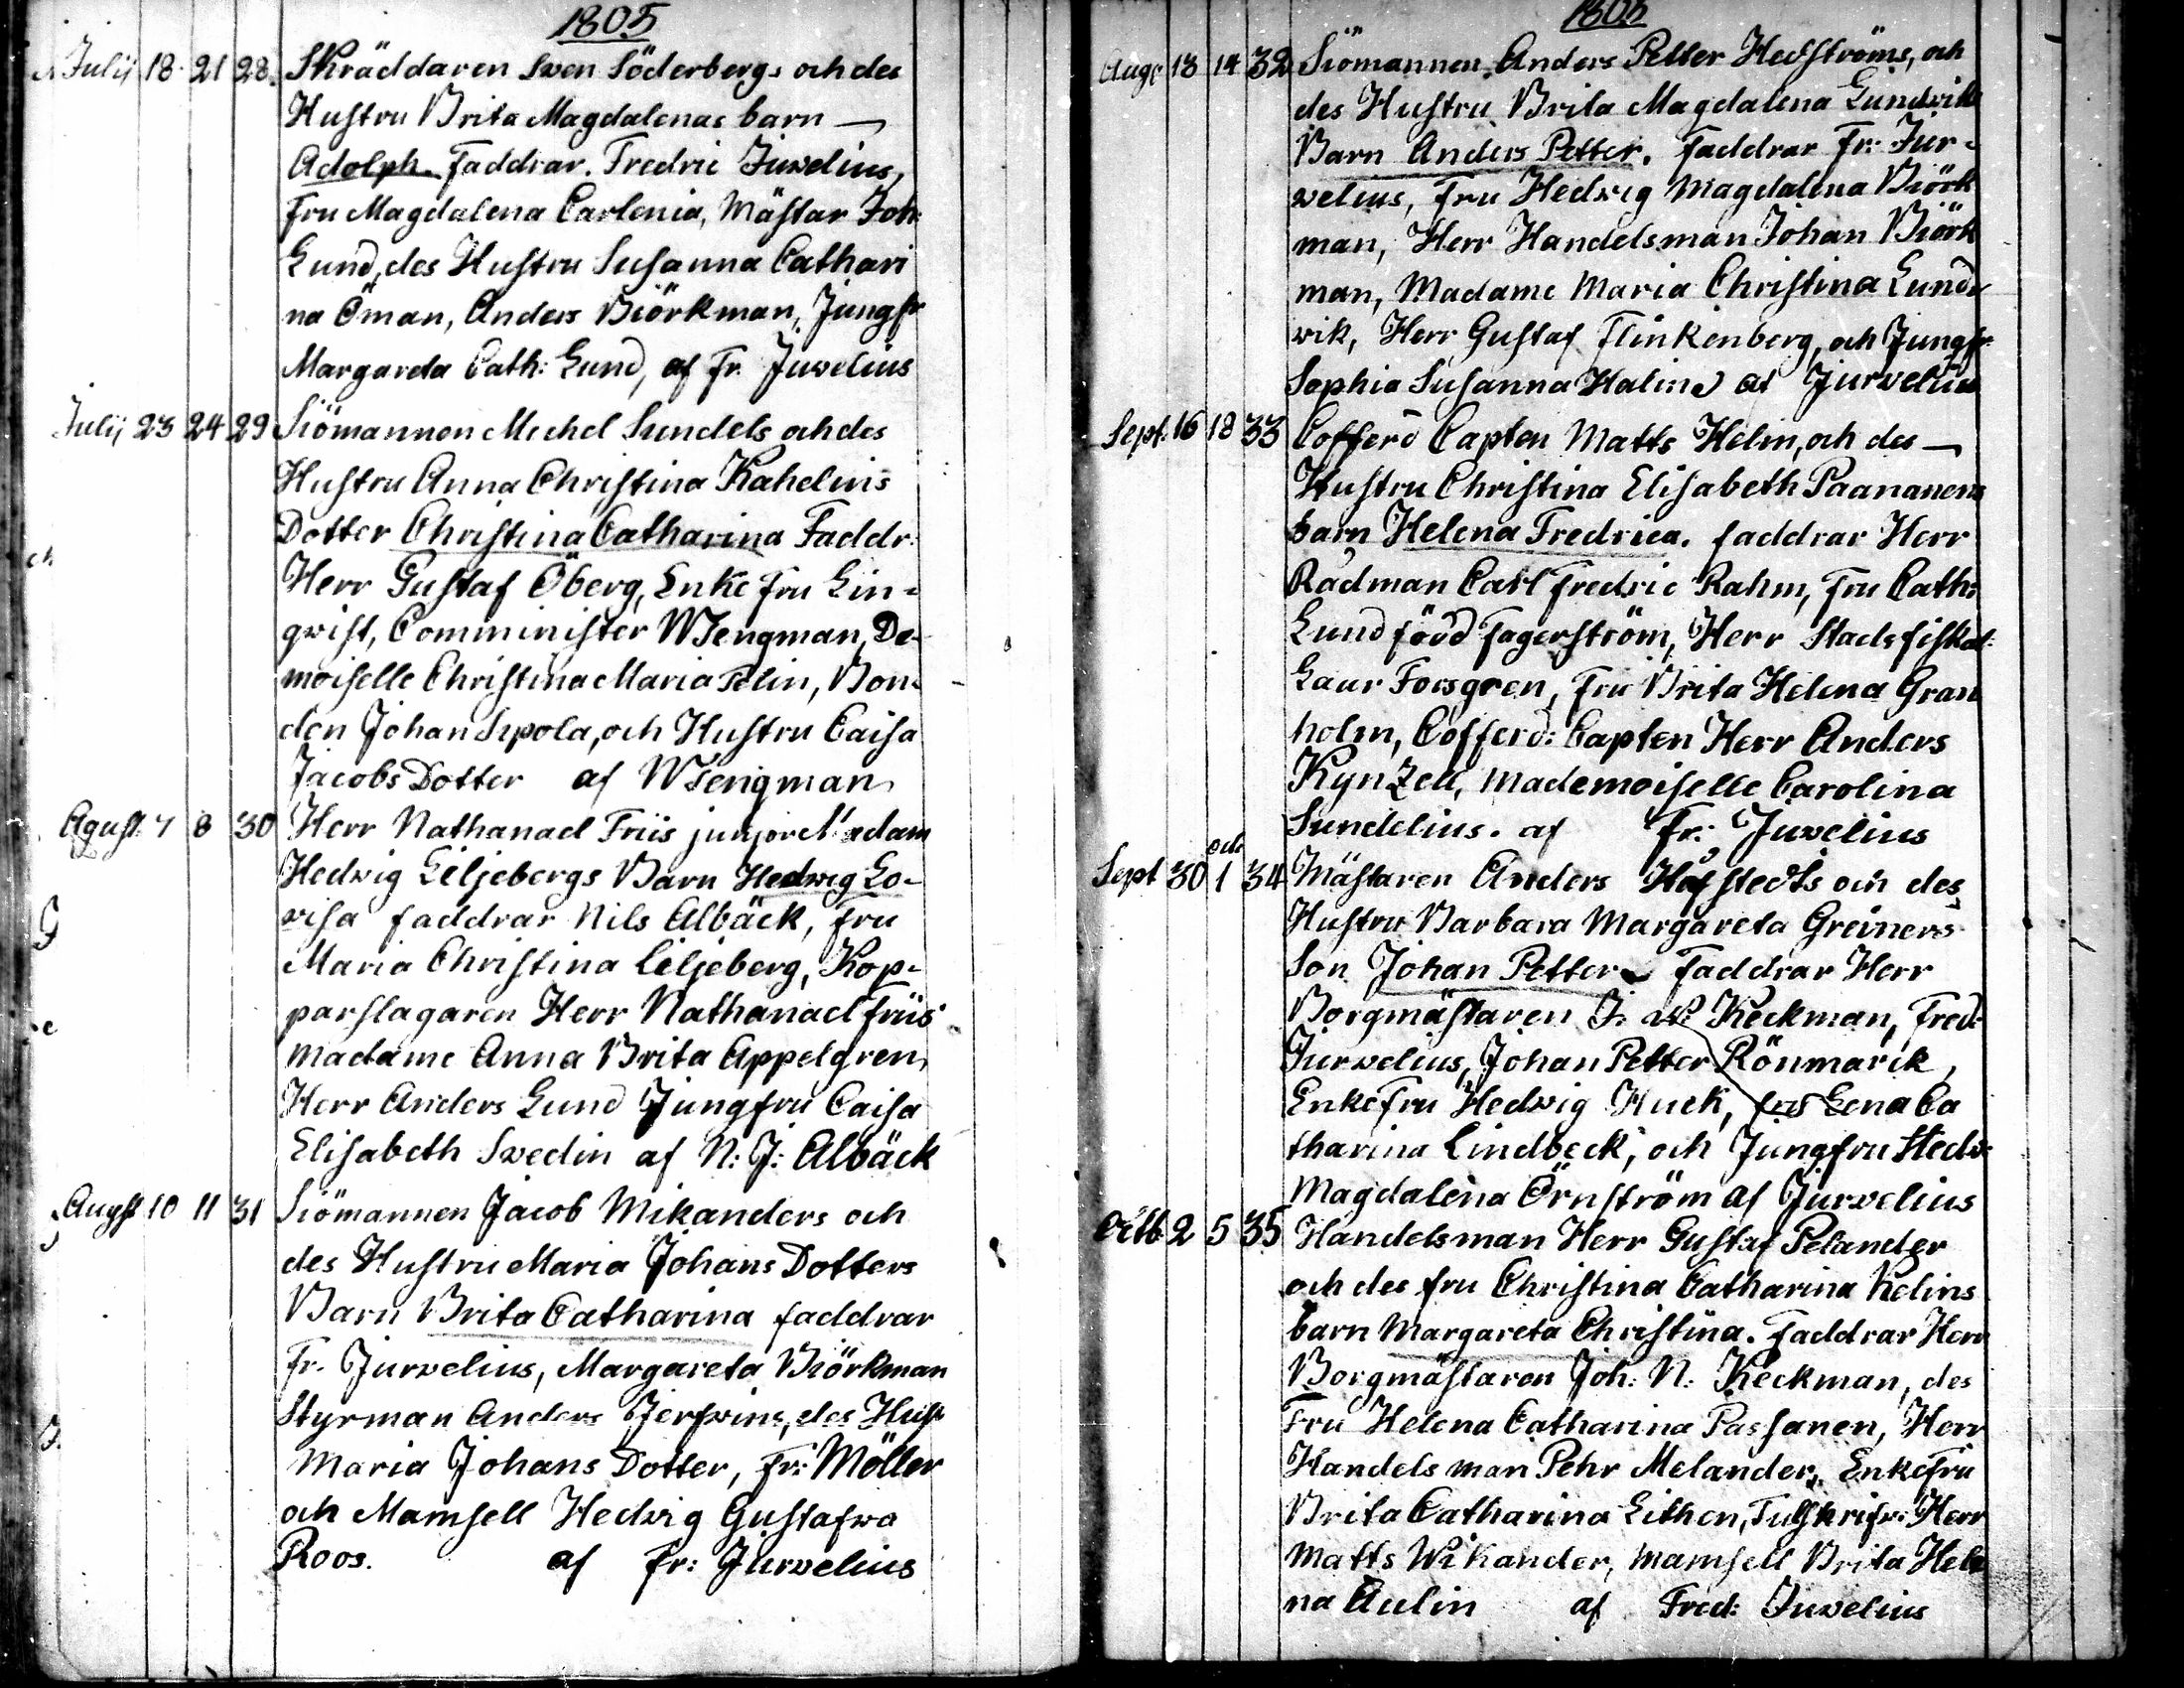 1805
Julij 18 21 28 Skräddaren Swen Söderbergs och des
Hustru Brita Magdalenas barn —
Adolph. Faddrar. Fredric Juwelius,
Fru Magdalena Carlenia, Mästar Joh:
Lund, des Hustru Susanna Cathari
na Öman, Anders Biörkman, Jungfr
Margareta Cath: Lund, af Fr. Juwelius
Julij 23 24 29 Siömannen Michel Sundels och des
Hustru Anna Christina Kahelins
Dotter Christina Catharina Faddr:
Herr Gustaf Öberg, Enke Fru Lin=
qwist, Comminister Wengman, De-
moiselle Christina Maria Pelin, Bon-
den Johan Sipola, och Hustru Caisa
Jacobs Dotter af Wengman
Agust. 7 8 30 Herr Nathanael Friis junjor Madam
Hedwig Liljebergs Barn Hedwig Lo-
visa faddrar Nils Albäck, fru
Maria Christina Liljeberg, Kop-
parslagaren Herr Nathanael friis
Madame Anna Brita Appelgren,
Herr Anders Lund Jungfru Caisa
Elisabeth Swedin af N: J: Albäck
Augst 10 11 31 Siömannen Jacob Mikanders och
des Hustru Maria Johans Dotters
Barn Brita Catharina faddrar
Fr. Jurvelius, Margareta Biörkman
Styrman Anders des Hust
Maria Johans Dotter, Fr: Möller
och Mamsell Hedwig Gustafwa
Roos. af Fr: Jurvelius
1805
Aug: 13 14 32 Siömannen Anders Petter Hedströms, och
des Hustru Brita Magdalena Lundwiks
Barn Anders Petter. Faddrar Fr: Jur-
velius, Fru Hedwig Magdalena Biörk
man, Herr Handelsman Johan Biörk
man, Madame Maria Christina Lund
wik, Herr Gustaf Flinkenberg, och Jungfr:
Sophia Susanna Halin af Jurvelius
Sept. 16 18 33 Cofferd Capten Matts Helin, och des —
Hustru Christina Elisabeth Paananens
barn Helena Fredrica. faddrar Herr
Rådman Carl Fredric Rahm, Fru Cath:
Lund född Fagerström, Herr Stadsfiskal:
Laur Forsgren, Fru Brita Helena Gran
holm, Cofferd: Capten Herr Anders
Kynzell, Mademoiselle Carolina
Sundelius. af Fr: Juwelius
Sept 30 oct 1 34 Mästaren Anders Håfstedts och des
Hustru Barbara Margareta Greiners
Son Johan Petter Faddrar Herr
Borgmästaren J. N: Keckman, Fred:
Jurvelius, Johan Petter Rönmarck,
Enkefru Hedwig Huck, Lena Ca
tharina Lindbeck, och Jungfru Hedw:
Magdalena Örnström af Jurvelius
Octb 2 5 35 Handelsman Herr Gustaf Pelander
och des fru Christina Catharina Kelins
barn Margareta Christina. Faddrar Herr
Borgmästaren Joh: N: Keckman, des
Fru Helena Catharina Passanen, Herr
Handelsman Pehr Melander, Enkefru
Brita Catharina Lithen, Herr
Matts Wikander, Mamsell Brita Hele
na Aulin af Fred: Juwelius